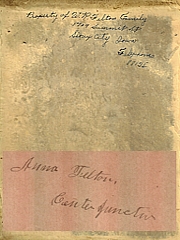 Property of W. P. Felton Family
1709 Summit St
Sioux City Iowa
Anna Felton,
Center Junction